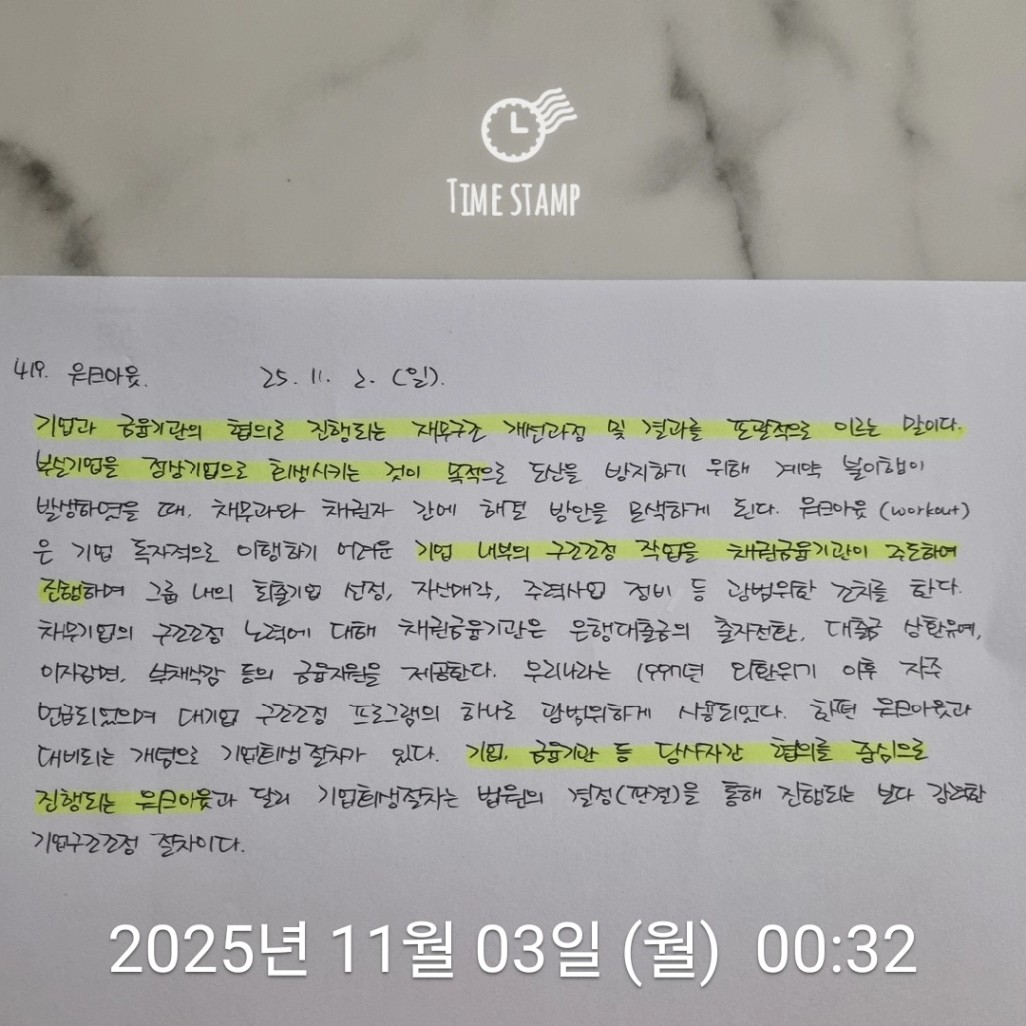 TIME STAMP
419. 워크아웃. 25. 11. 2. (일).
기업과 금융기관의 협의로 진행되는 재무구조 개선과정 및 결과를 포괄적으로 이르는 말이다.
부실기업을 정상기업으로 회생시키는 것이 목적으로 도산을 방지하기 위해 계약 불이행이
발생하였을 때, 채무자와 채권자 간에 해결 방안을 모색하게 된다. 워크아웃 (workout)
은 기업 독자적으로 이행하기 어려운 기업 내부의 구조조정 작업을 채권금융기관이 주도하여
진행하며 그룹 내의 퇴출기업 선정, 자산매각, 주력사업 정비 등 광범위한 조치를 한다.
채무기업의 구조조정 노력에 대해 채권금융기관은 은행대출금의 출자전환, 대출금 상환유예,
이자감면, 부채삭감 등의 금융지원을 제공한다. 우리나라는 1997년 외환위기 이후 자주
언급되었으며 대기업 구조조정 프로그램의 하나로 광범위하게 사용되었다. 한편 워크아웃과
대비되는 개념으로 기업회생절차가 있다. 기업, 금융기관 등 당사자간 협의를 중심으로
진행되는 워크아웃과 달리 기업회생절차는 법원의 결정(판결)을 통해 진행되는 보다 강력한
기업구조조정 절차이다.
2025년 11월 03일 (월) 00:32